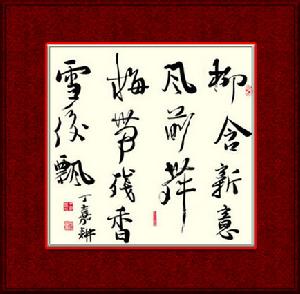 柳含新意
风前舞
梅带残香
雪後飘
丁嘉耕